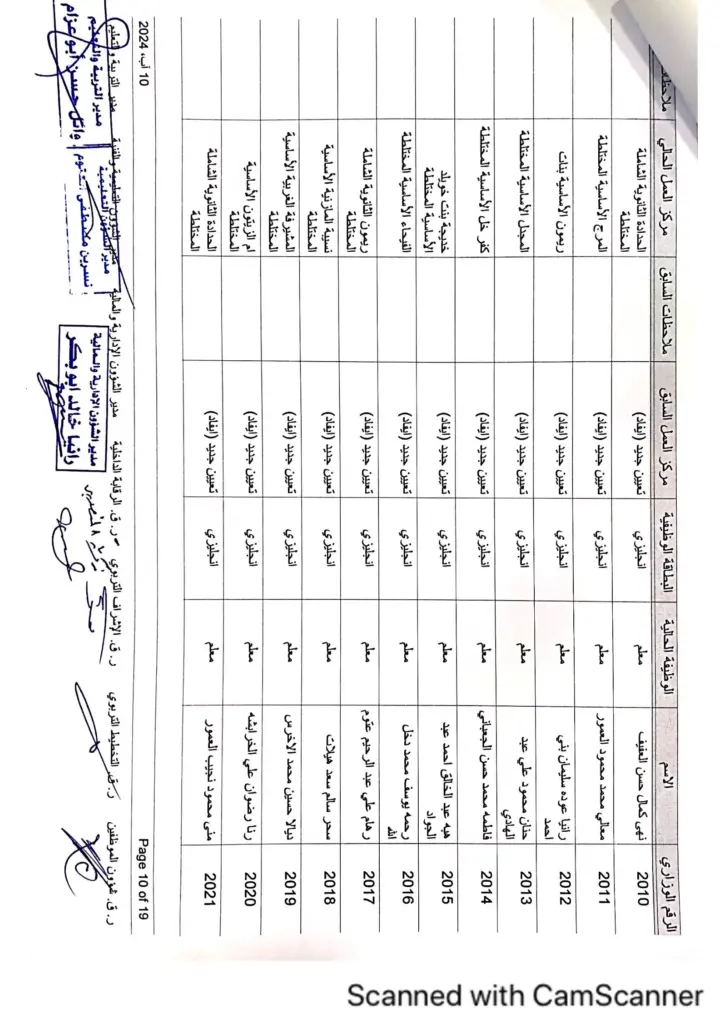 الرقم الوزاري الاسم الوظيفة الحالية البطاقة الوظيفية مركز العمل السابق ملاحظات السابق مركز العمل الحالي
2010 نهى كمال حسن العفيف معلم انجليزي تعيين جديد (ايفاد) الحدادة الثانوية الشاملة المختلطة
2011 معالي محمد محمود العمور معلم انجليزي تعيين جديد (ايفاد) المرج الأساسية المختلطة
2012 رانيا عوده سليمان بني احمد معلم انجليزي تعيين جديد (ايفاد) ريمون الأساسية بنات
2013 حنان محمود علي عبد الهادي معلم انجليزي تعيين جديد (ايفاد) المجدل الأساسية المختلطة
2014 فاطمه محمد حسن الجعباتي معلم انجليزي تعيين جديد (ايفاد) كفر خل الأساسية المختلطة
2015 هبه عبد الخالق احمد عبد الجواد معلم انجليزي تعيين جديد (ايفاد) خديجة بنت خويلد الأساسية المختلطة
2016 رحمه يوسف محمد دخل الله معلم انجليزي تعيين جديد (ايفاد) الفيحاء الأساسية المختلطة
2017 رهام علي عبد الرحيم عتوم معلم انجليزي تعيين جديد (ايفاد) ريمون الثانوية الشاملة المختلطة
2018 سحر سالم سعد هيلات معلم انجليزي تعيين جديد (ايفاد) نسيبة المازنية الأساسية المختلطة
2019 ديالا حسين محمد الاخرس معلم انجليزي تعيين جديد (ايفاد) المشيرفة الغربية الأساسية المختلطة
2020 رنا رضوان علي الخرابشه معلم انجليزي تعيين جديد (ايفاد) ام الزيتون الأساسية
2021 منى محمود نجيب العمور معلم انجليزي تعيين جديد (ايفاد) الحدادة الثانوية الشاملة المختلطة
Page 10 of 19
10 آب، 2024
ر. ق. شؤون الموظفين ر. ق. التخطيط التربوي ر. ق. الإشراف التربوي ر. ق. الرقابة الداخلية مدير الشؤون الإدارية والمالية مدير الشؤون التعليمية والفنية مدير التربية والتعليم
مدير الشؤون الإدارية والمالية
رانيا خالد ابو بكر
مدير الشؤون التعليمية
نسرين مصطفى العتوم
مدير التربية والتعليم
وائل حسن أبو عزام
Scanned with CamScanner